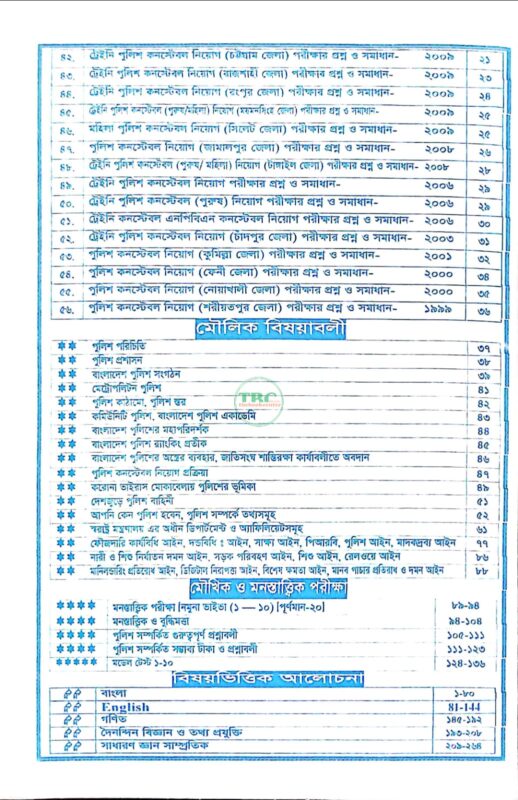 ৪২. ট্রেইনি পুলিশ কনস্টেবল নিয়োগ (চট্টগ্রাম জেলা) পরীক্ষার প্রশ্ন ও সমাধান- ২০০৯ ২১
৪৩. ট্রেইনি পুলিশ কনস্টেবল নিয়োগ (রাজশাহী জেলা) পরীক্ষার প্রশ্ন ও সমাধান- ২০০৯ ২৩
৪৪. ট্রেইনি পুলিশ কনস্টেবল নিয়োগ (রংপুর জেলা) পরীক্ষার প্রশ্ন ও সমাধান- ২০০৯ ২৪
৪৫. ট্রেইনি পুলিশ কনস্টেবল (পুরুষ/মহিলা) নিয়োগ (ময়মনসিংহ জেলা) পরীক্ষার প্রশ্ন ও সমাধান- ২০০৯ ২৫
৪৬. মহিলা পুলিশ কনস্টেবল নিয়োগ (সিলেট জেলা) পরীক্ষার প্রশ্ন ও সমাধান- ২০০৯ ২৫
৪৭. পুলিশ কনস্টেবল নিয়োগ (জামালপুর জেলা) পরীক্ষার প্রশ্ন ও সমাধান- ২০০৮ ২৬
৪৮. ট্রেইনি পুলিশ কনস্টেবল (পুরুষ/ মহিলা) নিয়োগ (টাঙ্গাইল জেলা) পরীক্ষার প্রশ্ন ও সমাধান- ২০০৮ ২৮
৪৯. ট্রেইনি পুলিশ কনস্টেবল নিয়োগ পরীক্ষার প্রশ্ন ও সমাধান- ২০০৬ ২৯
৫০. ট্রেইনি পুলিশ কনস্টেবল (পুরুষ) নিয়োগ পরীক্ষার প্রশ্ন ও সমাধান- ২০০৬ ২৯
৫১. ট্রেইনি কনস্টেবল এনপিবিএন কনস্টেবল নিয়োগ পরীক্ষার প্রশ্ন ও সমাধান- ২০০৬ ৩০
৫২. ট্রেইনি পুলিশ কনস্টেবল নিয়োগ (চাঁদপুর জেলা) পরীক্ষার প্রশ্ন ও সমাধান- ২০০৩ ৩১
৫৩. পুলিশ কনস্টেবল নিয়োগ (কুমিল্লা জেলা) পরীক্ষার প্রশ্ন ও সমাধান- ২০০১ ৩২
৫৪. পুলিশ কনস্টেবল নিয়োগ (ফেনী জেলা) পরীক্ষার প্রশ্ন ও সমাধান- ২০০০ ৩৪
৫৫. পুলিশ কনস্টেবল নিয়োগ (নোয়াখালী জেলা) পরীক্ষার প্রশ্ন ও সমাধান- ২০০০ ৩৫
৫৬. পুলিশ কনস্টেবল নিয়োগ (শরীয়তপুর জেলা) পরীক্ষার প্রশ্ন ও সমাধান- ১৯৯৯ ৩৬
মৌলিক বিষয়াবলী
** পুলিশ পরিচিতি ৩৭
** পুলিশ প্রশাসন ৩৮
** বাংলাদেশ পুলিশ সংগঠন ৩৯
** মেট্রোপলিটন পুলিশ ৪১
** পুলিশ কাঠামো, পুলিশ স্তর ৪২
** কমিউনিটি পুলিশ, বাংলাদেশ পুলিশ একাডেমি ৪৩
** বাংলাদেশ পুলিশের মহাপরিদর্শক ৪৪
** বাংলাদেশ পুলিশ র‍্যাংকিং প্রতীক ৪৫
** বাংলাদেশ পুলিশের অস্ত্রের ব্যবহার, জাতিসংঘ শান্তিরক্ষা কার্যাবলীতে অবদান ৪৬
** পুলিশ কনস্টেবল নিয়োগ প্রক্রিয়া ৪৭
** করোনা ভাইরাস মোকাবেলায় পুলিশের ভূমিকা ৪৯
** দেশজুড়ে পুলিশ বাহিনী ৫১
** আপনি কেন পুলিশ হবেন, পুলিশ সম্পর্কে তথ্যসমূহ ৫২
** স্বরাষ্ট্র মন্ত্রণালয় এর অধীন ডিপার্টমেন্ট ও অ্যাফিলিয়েটসমূহ ৬১
** ফৌজদারি কার্যবিধি আইন, দন্ডবিধি : আইন, সাক্ষ্য আইন, পিআরবি, পুলিশ আইন, মাদকদ্রব্য আইন ৭৭
** নারী ও শিশু নির্যাতন দমন আইন, সড়ক পরিবহণ আইন, শিশু আইন, রেলওয়ে আইন ৮৬
** মানিলন্ডারিং প্রতিরোধ আইন, ডিজিটাল নিরাপত্তা আইন, বিশেষ ক্ষমতা আইন, মানব পাচার প্রতিরোধ ও দমন আইন ৮৮
TRC
মৌখিক ও মনস্তাত্ত্বিক পরীক্ষা
**** মনস্তাত্ত্বিক পরীক্ষা [নমুনা ভাইভা (১ — ১০) [পূর্ণমান-২০] ৮৯-৯৪
**** মনস্তাত্ত্ব ও বুদ্ধিমত্তা ৯৪-১০৪
**** পুলিশ সম্পর্কিত গুরুত্বপূর্ণ প্রশ্নাবলী ১০৫-১১১
**** পুলিশ সম্পর্কিত সম্ভাব্য টীকা ও প্রশ্নাবলী ১১১-১২৩
***** মডেল টেস্ট ১-১০ ১২৪-১৩৬
বিষয়ভিত্তিক আলোচনা
বাংলা ১-৮০
English 81-144
গণিত ১৪৫-১৯২
দৈনন্দিন বিজ্ঞান ও তথ্য প্রযুক্তি ১৯৩-২০৮
সাধারণ জ্ঞান সাম্প্রতিক ২০৯-২৬৪